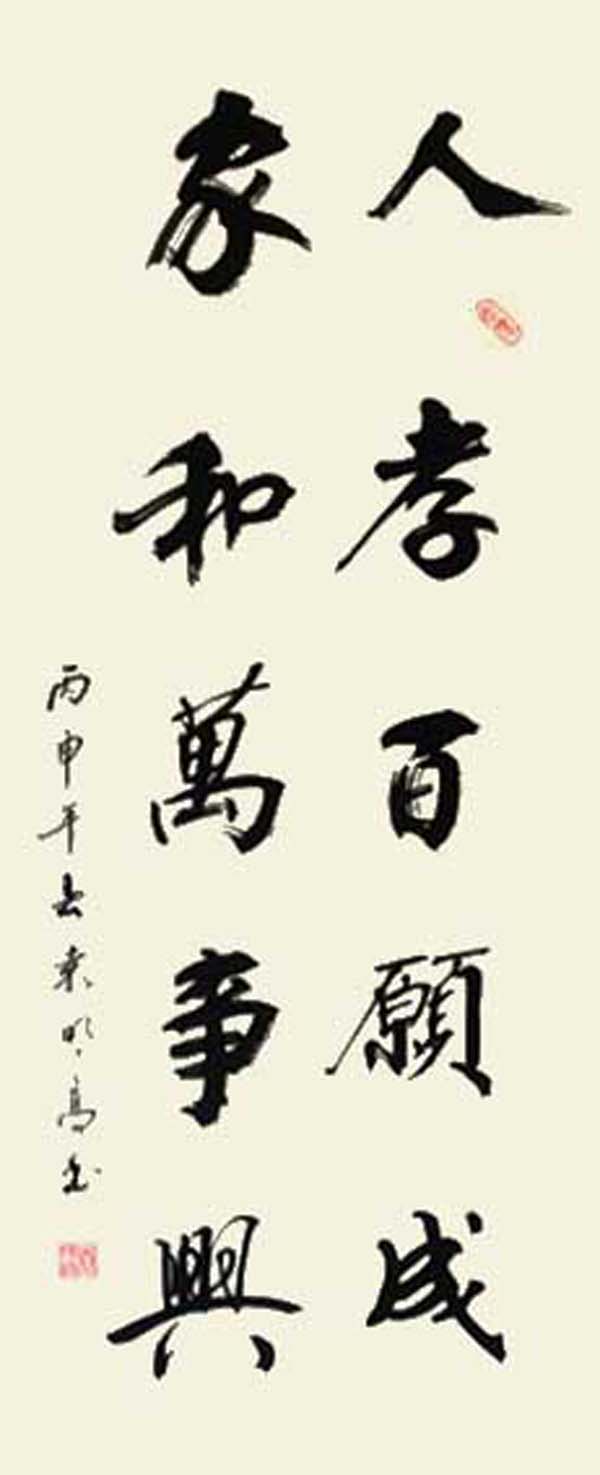 人孝百願成
家和萬事興
丙申年去東明高书